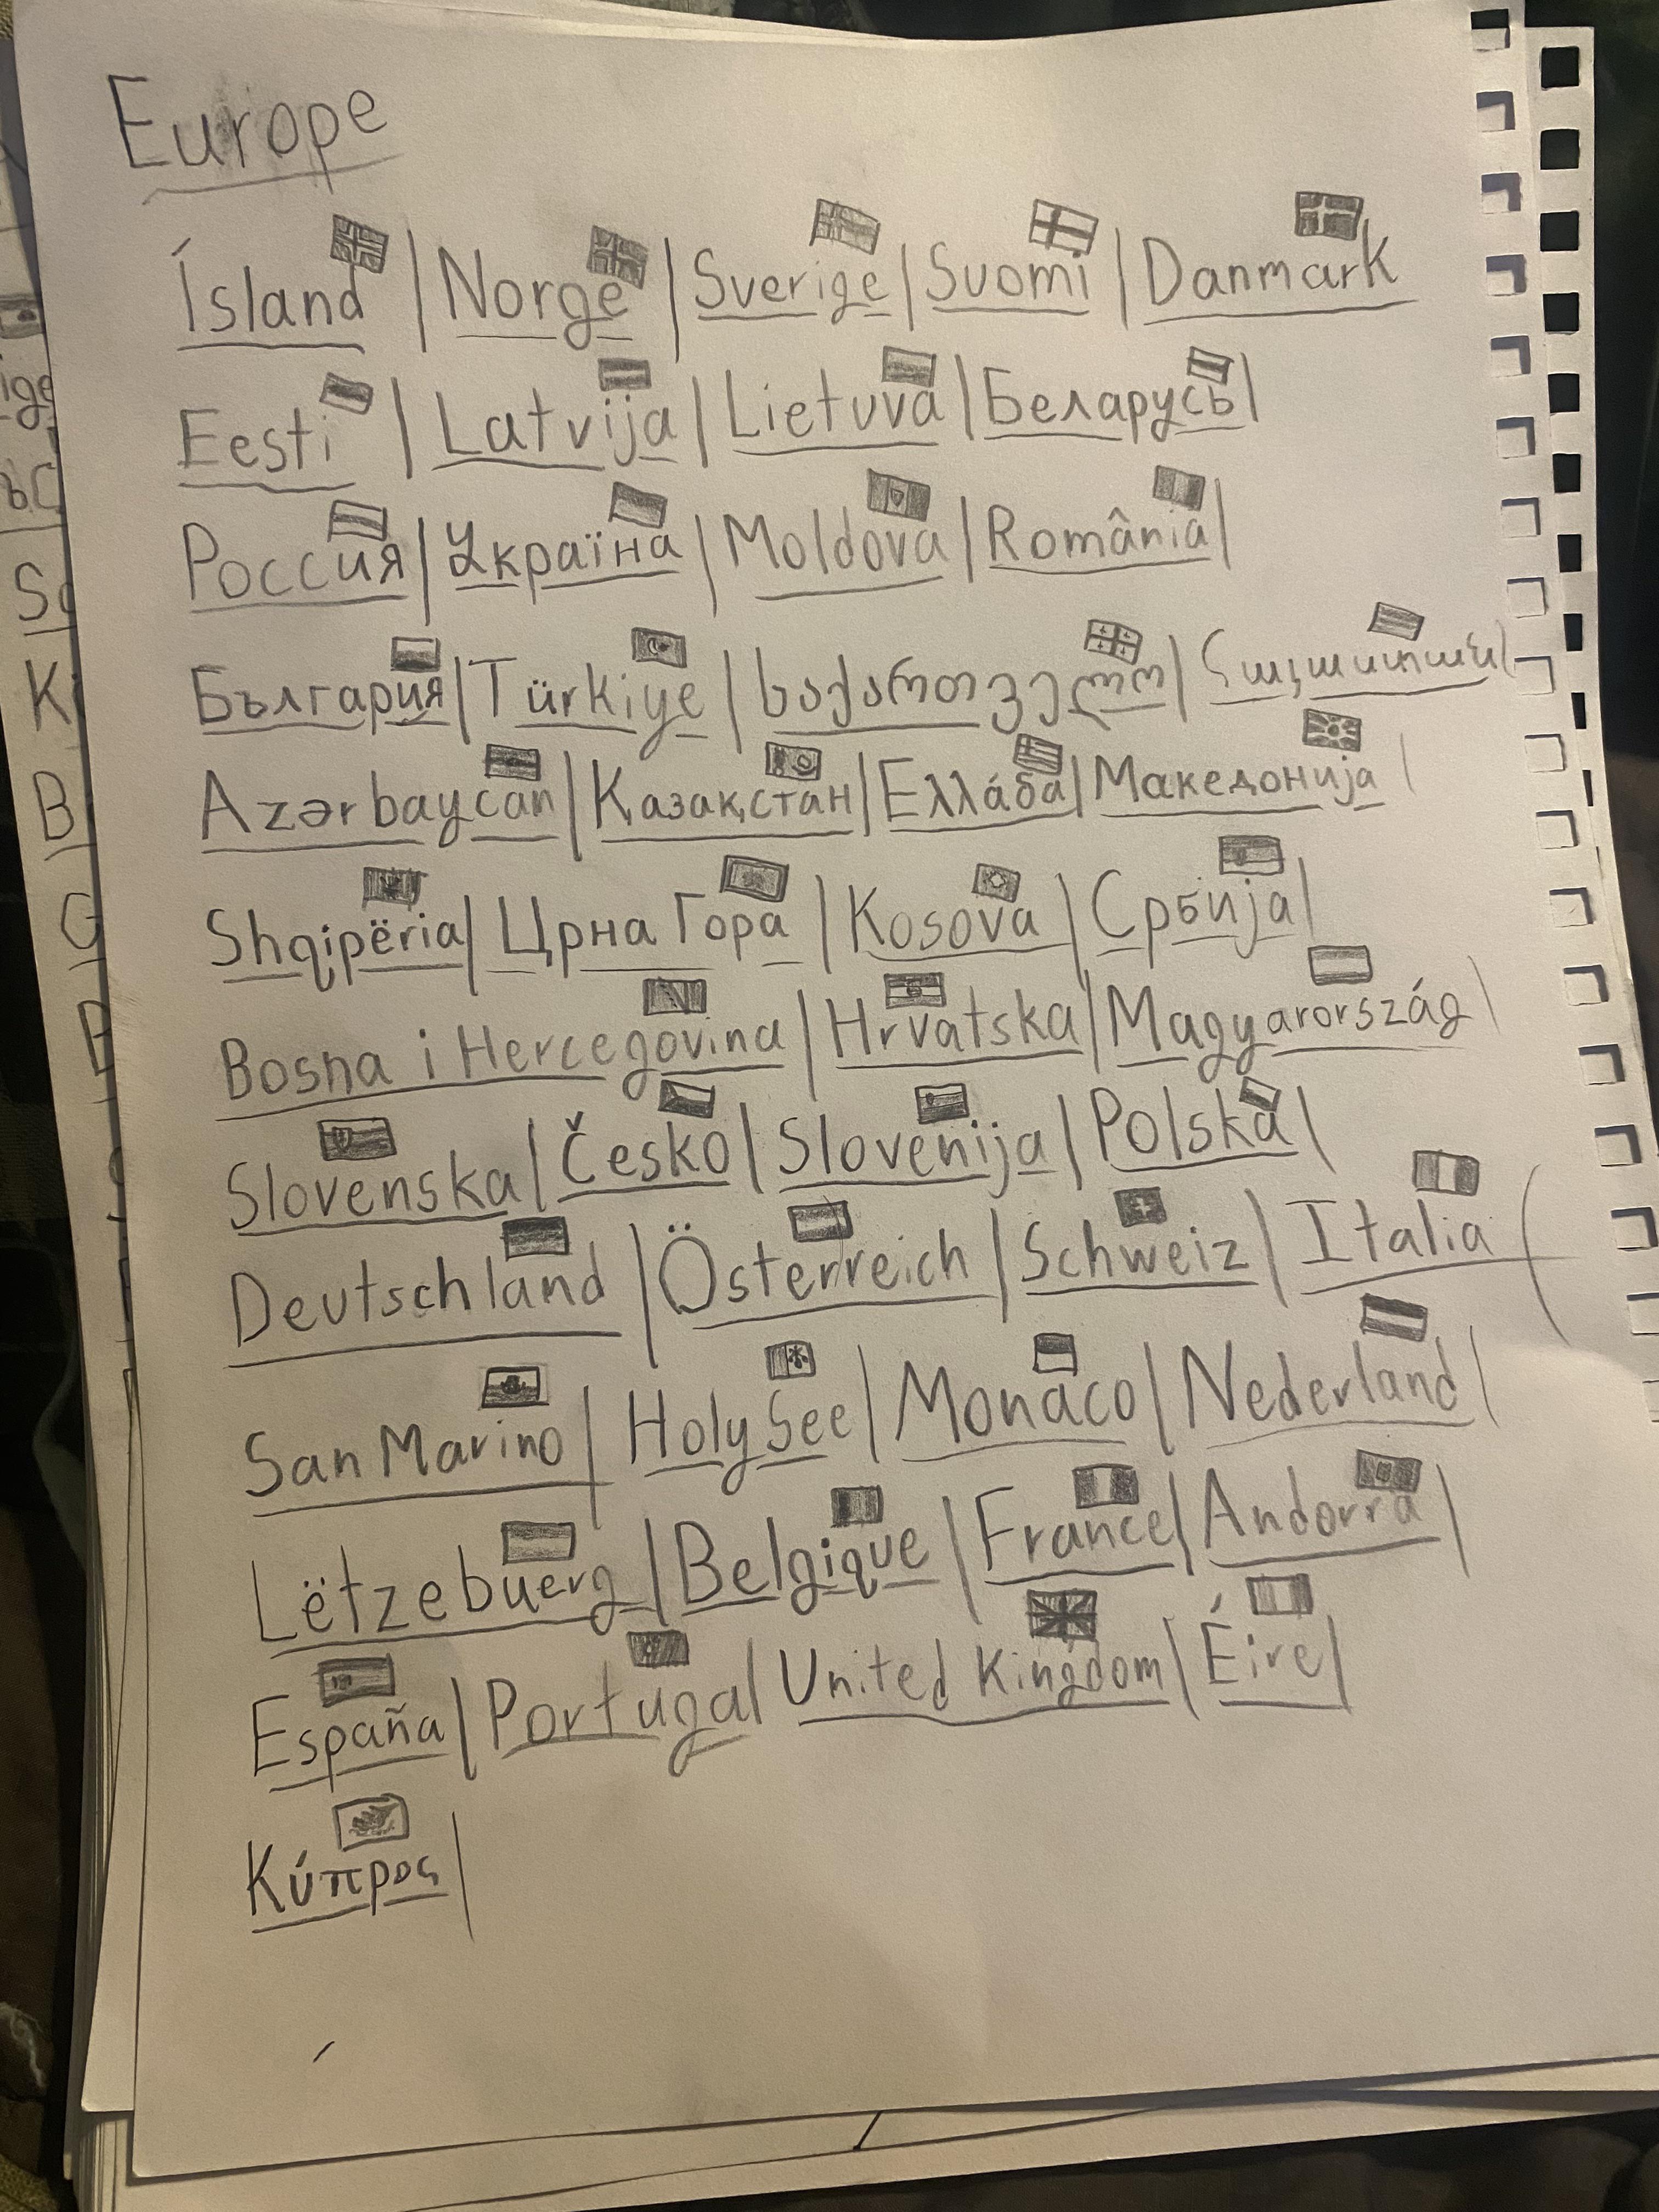 Europe
Ísland | Norge | Sverige | Suomi | Danmark
Eesti | Latvija | Lietuva | Беларусь |
Россия | Україна | Moldova | România |
България | Türkiye | საქართველო |
Azərbaycan | Қазақстан | Ελλάδα | Македонија |
Shqipëria | Црна Гора | Kosova | Србија |
Bosna i Hercegovina | Hrvatska | Magyarország |
Slovenska | Česko | Slovenija | Polska |
Deutschland | Österreich | Schweiz | Italia |
San Marino | Holy See | Monaco | Nederland |
Lëtzebuerg | Belgique | France | Andorra |
España | Portugal | United Kingdom | Éire |
Κύπρος |